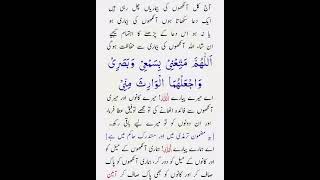 آج کل آنکھوں کی بیماریاں چل رہی ہیں
ایک دعا سکھاتا ہوں آنکھوں کی بیماری ہو
یا نہ ہو اس دعا کے پڑھنے کا اہتمام کیجیے
ان شاء اللہ آنکھوں کی بیماری سے حفاظت ہوگی
اَللّٰهُمَّ مَتِّعْنِیْ بِسَمْعِیْ وَبَصَرِیْ
وَاجْعَلْهُمَا الْوَارِثَ مِنِّیْ
اے میرے پیارے اللہ! میرے کانوں اور میری
آنکھوں سے فائدہ اٹھانے کی مجھے توفیق عطا فرما،
اور ان دونوں کو تو میرے لیے باقی رکھ۔
یہ مضمون ترمذی میں اور مستدرک حاکم میں ہے
اے میرے پیارے اللہ! ہماری آنکھوں کے میل کو
ہمارے کانوں کے میل کو دور کر، ہماری آنکھوں کو پاک
صاف کر اور کانوں کو بھی پاک صاف کر آمین